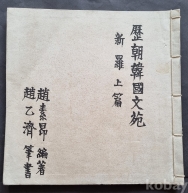 歷朝韓國文苑
新羅上篇
趙素昻 編著
趙乙濟 筆書
kobay